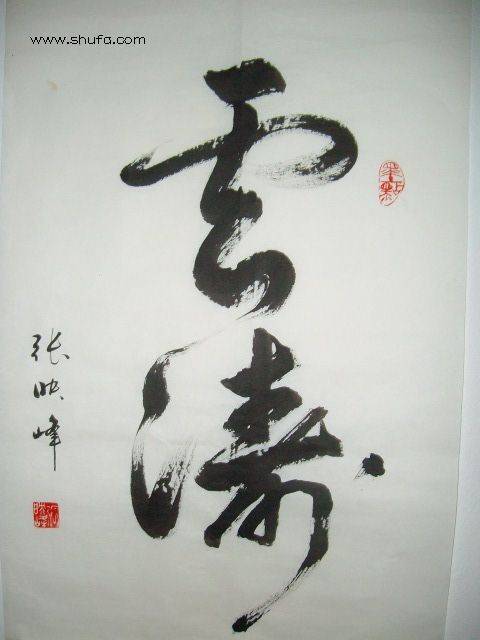 www.shufa.com
云涛
张映峰